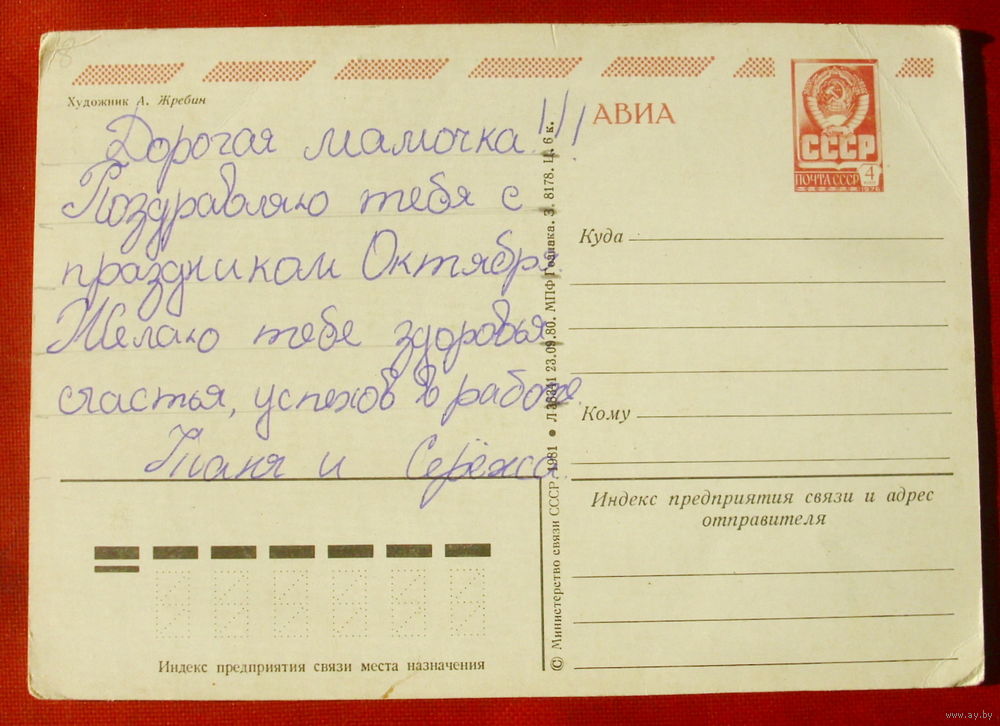 8
Художник А. Жребин
Дорогая мамочка!!!
Поздравляю тебя с
праздником Октября.
Желаю тебе здоровья
счастья, успехов в работе.
Таня и Серёжа.
АВИА
СССР
ПОЧТА СССР 4
1976
Куда
Кому
Индекс предприятия связи и адрес
отправителя
Индекс предприятия связи места назначения
© Министерство связи СССР. 1981 • 23.09.80. МПФ Гознака. З. 8178. Ц. 6 к.
www.ay.by